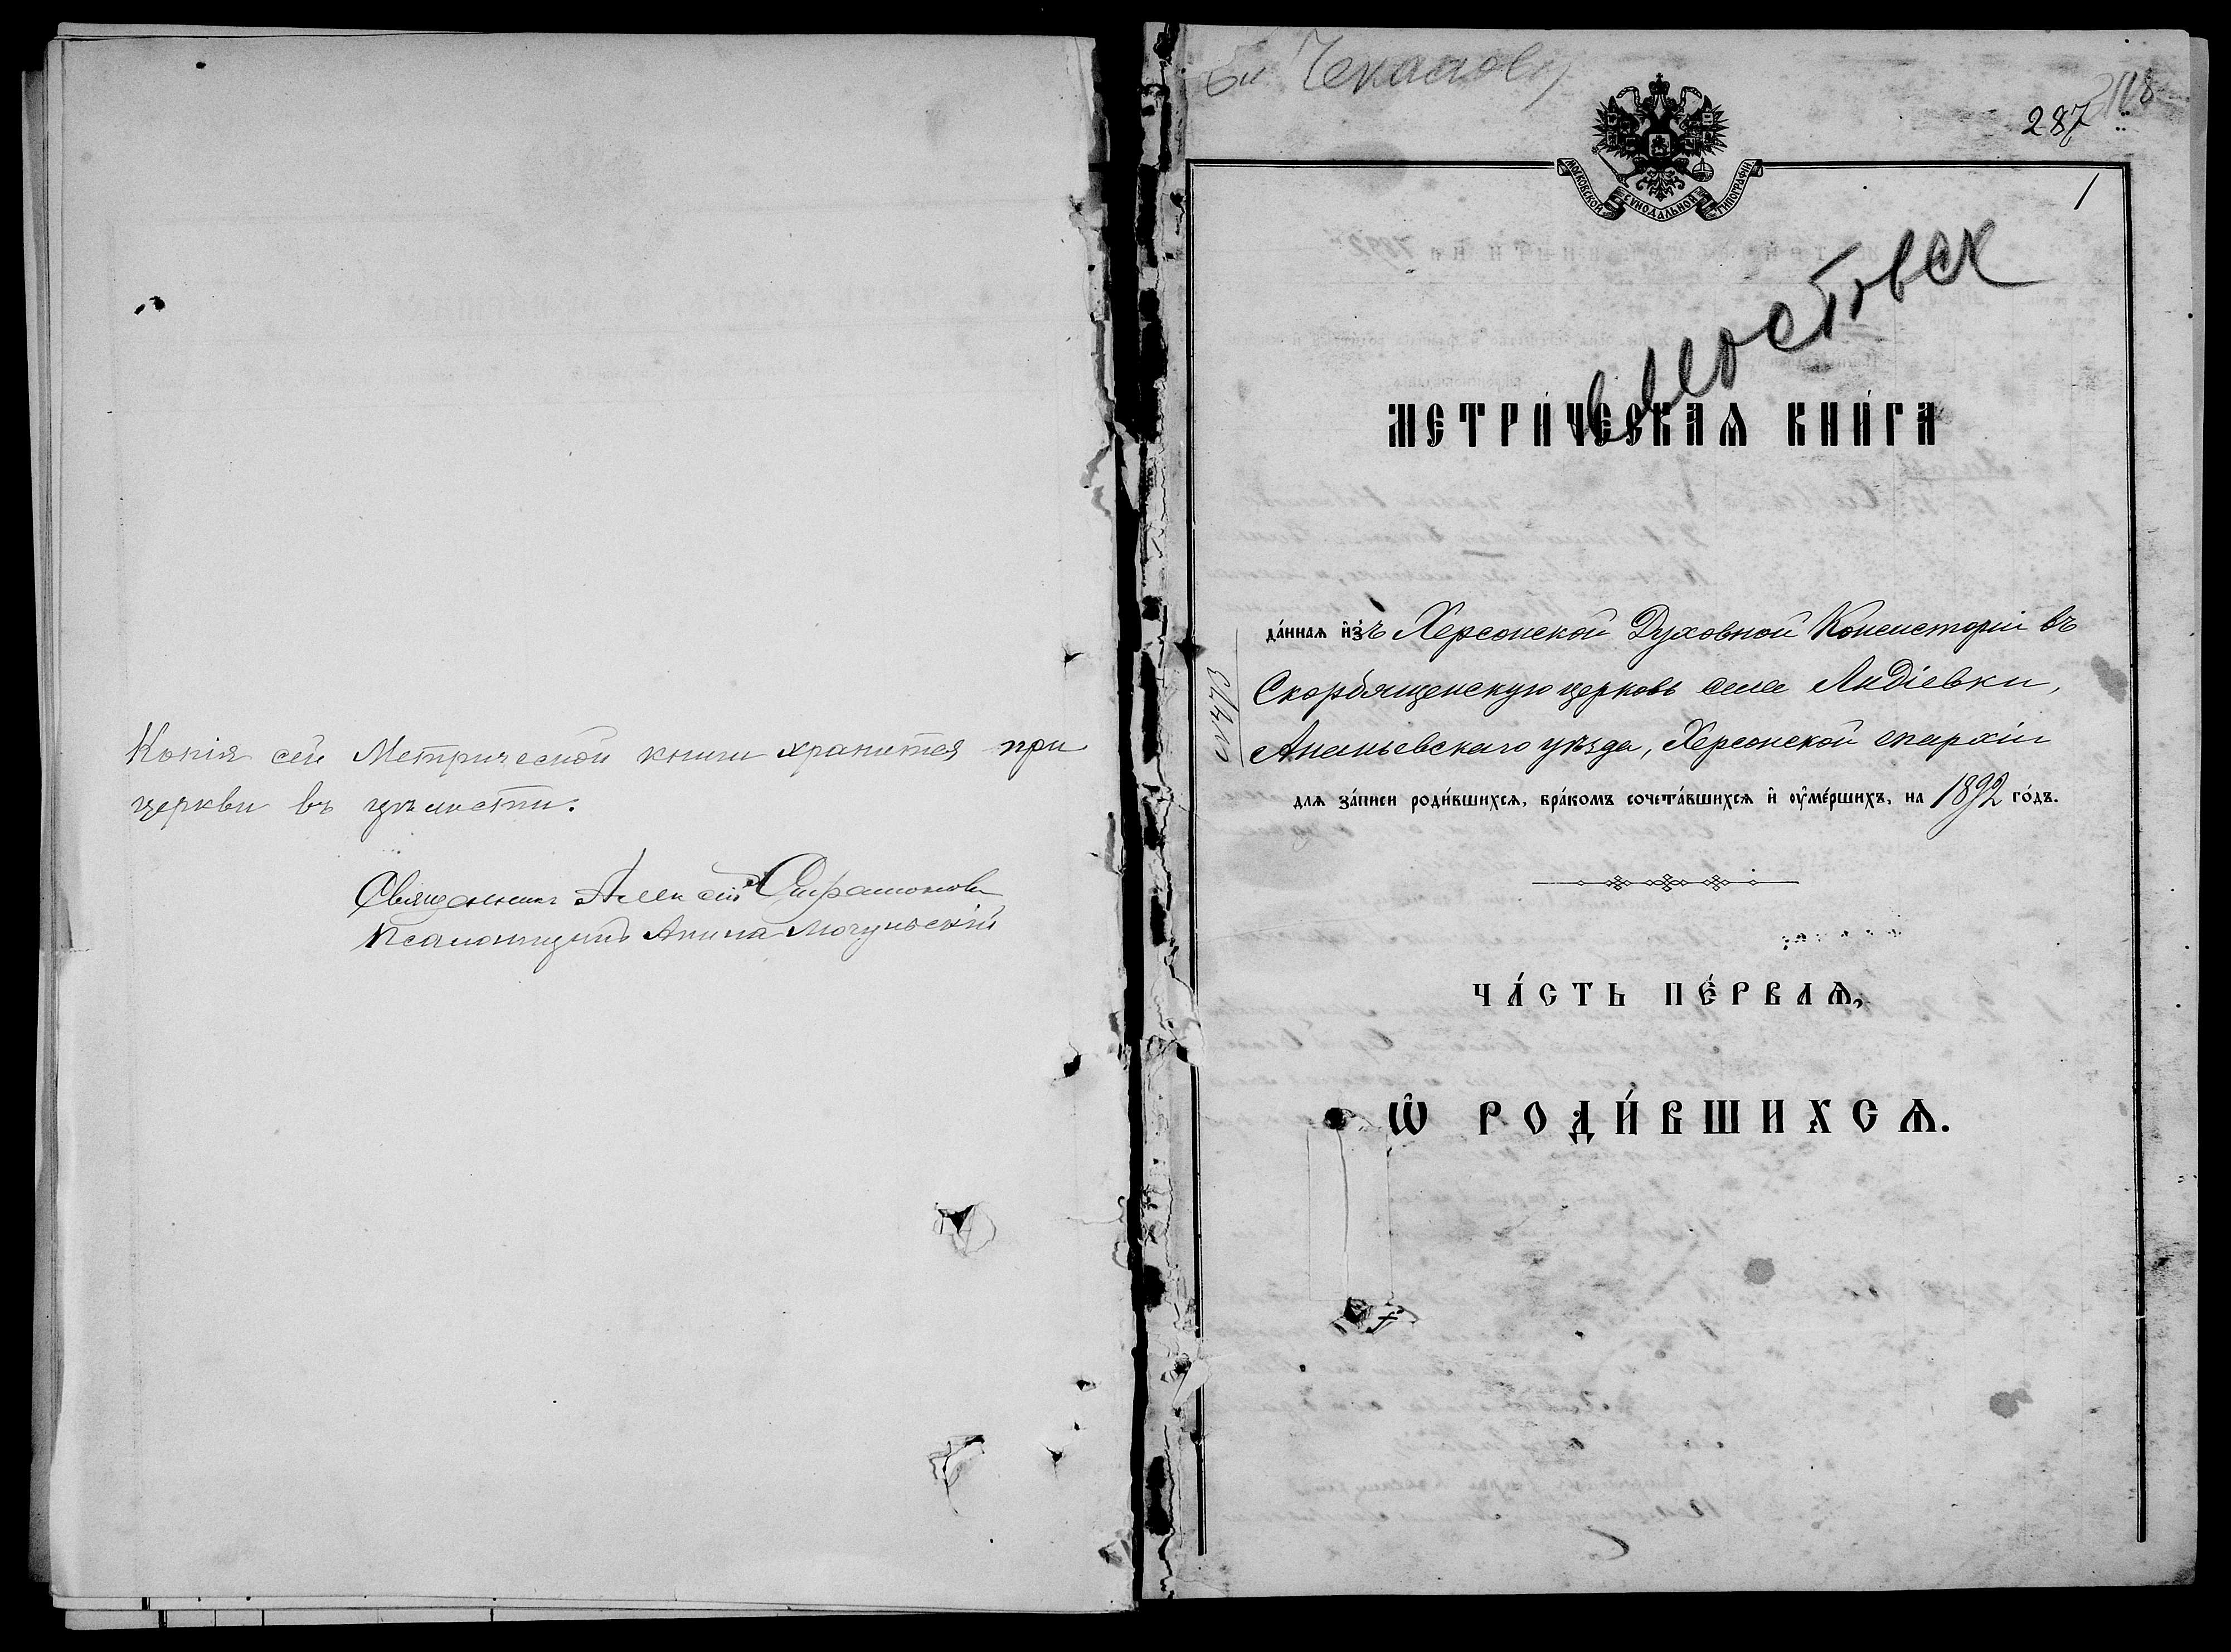 Копія сей Метрической книги хранится при
церкви въ цѣлости.
Священникъ Алексій
Псаломщикъ
287
1
МОСКОВСКОЙ СѴНОДАЛЬНОЙ ТИПОГРАФІИ
МЕТРИ́ЧЕСКАѦ КНИ́ГА
№ 473
да́ннаѧ и҆зъ Херсонской Духовной Консисторіи въ
Скорбященскую церковь села Лидіевки,
Ананьевскаго уѣзда, Херсонской епархіи
для за́писи роди́вшихсѧ, бра́комъ сочета́вшихсѧ и҆ ᲂу҆ме́ршихъ, на 1892 го́дъ.
ЧА́СТЬ ПЕ́РВАѦ,
Ѡ҆ РОДИ́ВШИХСѦ.